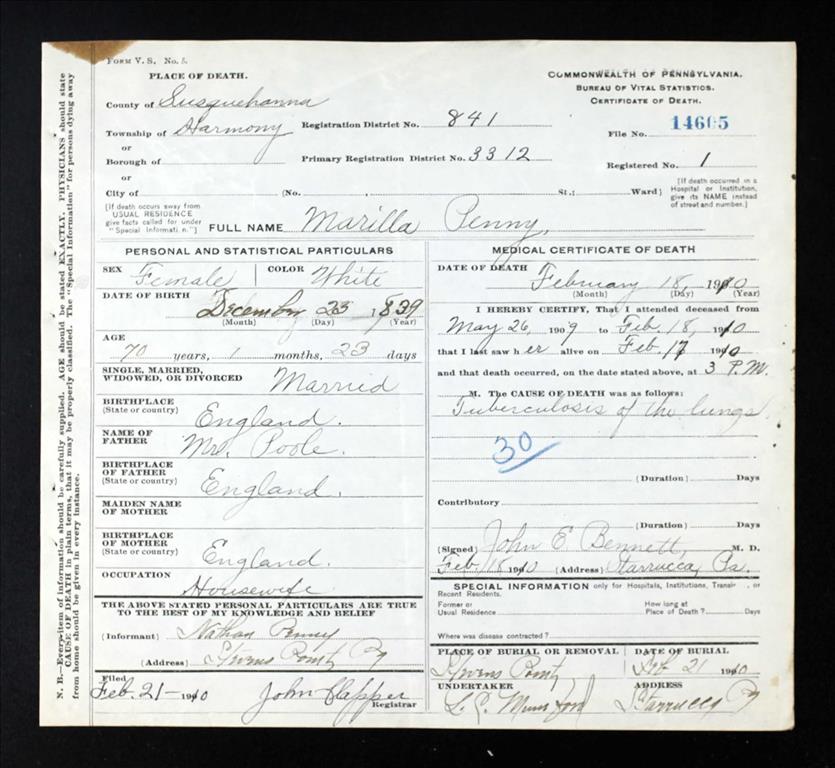 FORM V. S. No. 5.
PLACE OF DEATH.
County of Susquehanna
Township of Harmony
or
Borough of
or
City of (No. , St.; Ward)
COMMONWEALTH OF PENNSYLVANIA.
BUREAU OF VITAL STATISTICS.
CERTIFICATE OF DEATH.
Registration District No. 841
File No. 14605
Primary Registration District No. 3312
Registered No. 1
[If death occurred in a Hospital or Institution, give its NAME instead of street and number.]
[If death occurs away from USUAL RESIDENCE give facts called for under "Special Information."]
FULL NAME Marilla Penny,
PERSONAL AND STATISTICAL PARTICULARS
SEX Female COLOR White
DATE OF BIRTH December 23 1839
(Month) (Day) (Year)
AGE
70 years, 1 months, 23 days
SINGLE, MARRIED,
WIDOWED, OR DIVORCED Married
BIRTHPLACE
(State or country) England.
NAME OF
FATHER Mr. Poole.
BIRTHPLACE
OF FATHER
(State or country) England.
MAIDEN NAME
OF MOTHER
BIRTHPLACE
OF MOTHER
(State or country) England.
OCCUPATION Housewife
THE ABOVE STATED PERSONAL PARTICULARS ARE TRUE
TO THE BEST OF MY KNOWLEDGE AND BELIEF
(Informant) Nathan Penny
(Address) Stevens Point Pa
Filed
Feb. 21- 1910 John Clapper
Registrar
MEDICAL CERTIFICATE OF DEATH
DATE OF DEATH February 18, 1910
(Month) (Day) (Year)
I HEREBY CERTIFY, That I attended deceased from
May 26, 1909 to Feb. 18, 1910
that I last saw her alive on Feb 17 1910
and that death occurred, on the date stated above, at 3 P.M.
M. The CAUSE OF DEATH was as follows:
Tuberculosis of the lungs
30
(Duration) Days
Contributory
(Duration) Days
(Signed) John E. Bennett, M. D.
Feb. 18 1910 (Address) Starrucca, Pa.
SPECIAL INFORMATION only for Hospitals, Institutions, Transients, or
Recent Residents.
Former or
Usual Residence
How long at
Place of Death? Days
Where was disease contracted?
PLACE OF BURIAL OR REMOVAL DATE OF BURIAL
Stevens Point, Feb 21 1910
UNDERTAKER ADDRESS
Mumford Starrucca Pa
N. B.—Every item of information should be carefully supplied. AGE should be stated EXACTLY. PHYSICIANS should state
CAUSE OF DEATH in plain terms, that it may be properly classified. The "Special Information" for persons dying away
from home should be given in every instance.